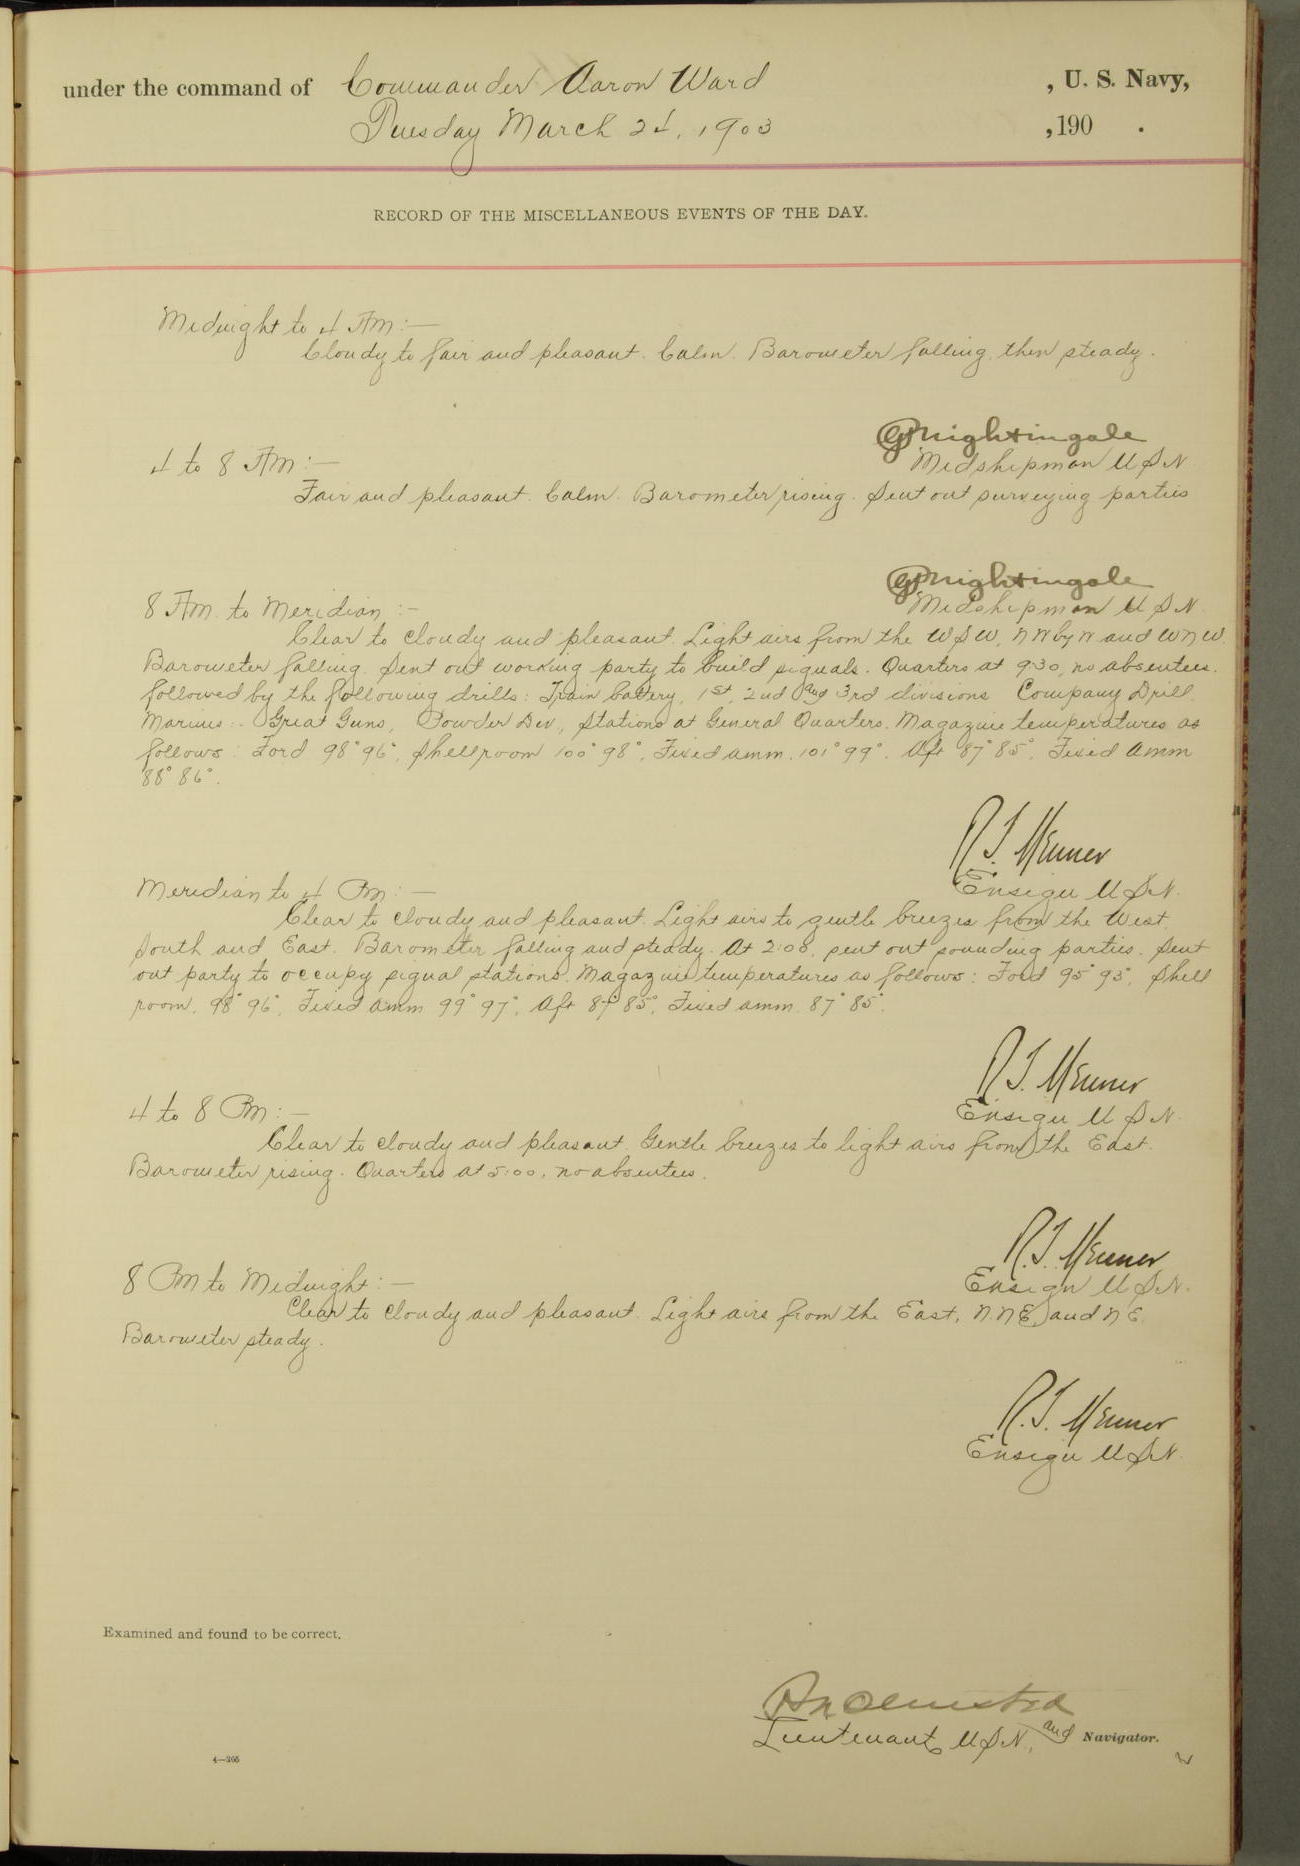 under the command of Commander Aaron Ward , U. S. Navy,
Tuesday March 24, 1903 , 190 .
RECORD OF THE MISCELLANEOUS EVENTS OF THE DAY.
Midnight to 4 AM:—
Cloudy to fair and pleasant. Calm. Barometer falling, then steady.
GPNightingale
Midshipman U S N
4 to 8 AM:—
Fair and pleasant. Calm. Barometer rising. Sent out surveying parties
GPNightingale
Midshipman U S N.
8 AM. to Meridian:—
Clear to cloudy and pleasant. Light airs from the W S W, N W by W and W N W.
Barometer falling. Sent out working party to build signals. Quarters at 9:30, no absentees.
followed by the following drills: Train battery, 1st, 2nd and 3rd divisions Company Drill,
Marines:- Great Guns, Powder Div, Stations at General Quarters. Magazine temperatures as
follows: Ford 98° 96°, Shell room 100° 98°, Fixed amm. 101° 99°. Aft 87° 85°, Fixed Amm
88° 86°.
R. T. Menner
Ensign U S N.
Meridian to 4 PM:—
Clear to cloudy and pleasant. Light airs to gentle breezes from the West,
South and East. Barometer falling and steady. At 2:08, sent out sounding parties. Sent
out party to occupy signal stations. Magazine temperatures as follows: Ford 95° 93°, Shell
room, 98° 96°, Fixed Amm 99° 97°, Aft 87° 85°, Fixed amm. 87° 85°.
R. T. Menner
Ensign U S N.
4 to 8 PM:—
Clear to cloudy and pleasant. Gentle breezes to light airs from the East.
Barometer rising. Quarters at 5:00, no absentees.
R. T. Menner
Ensign U S N.
8 PM to Midnight:—
Clear to cloudy and pleasant. Light airs from the East, N.N.E, and N E.
Barometer steady.
R. T. Menner
Ensign U S N.
Examined and found to be correct.
Olmsted
Lieutenant, U S N, and Navigator.
4—205